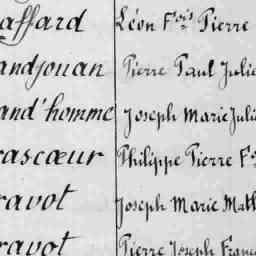 affard Léon Fois Pierre
andjouan Pierre Paul Julie
and'homme Joseph Marie Juli
rascœur Philippe Pierre Fo
ravot Joseph Marie Math
ravot Pierre Joseph Franç